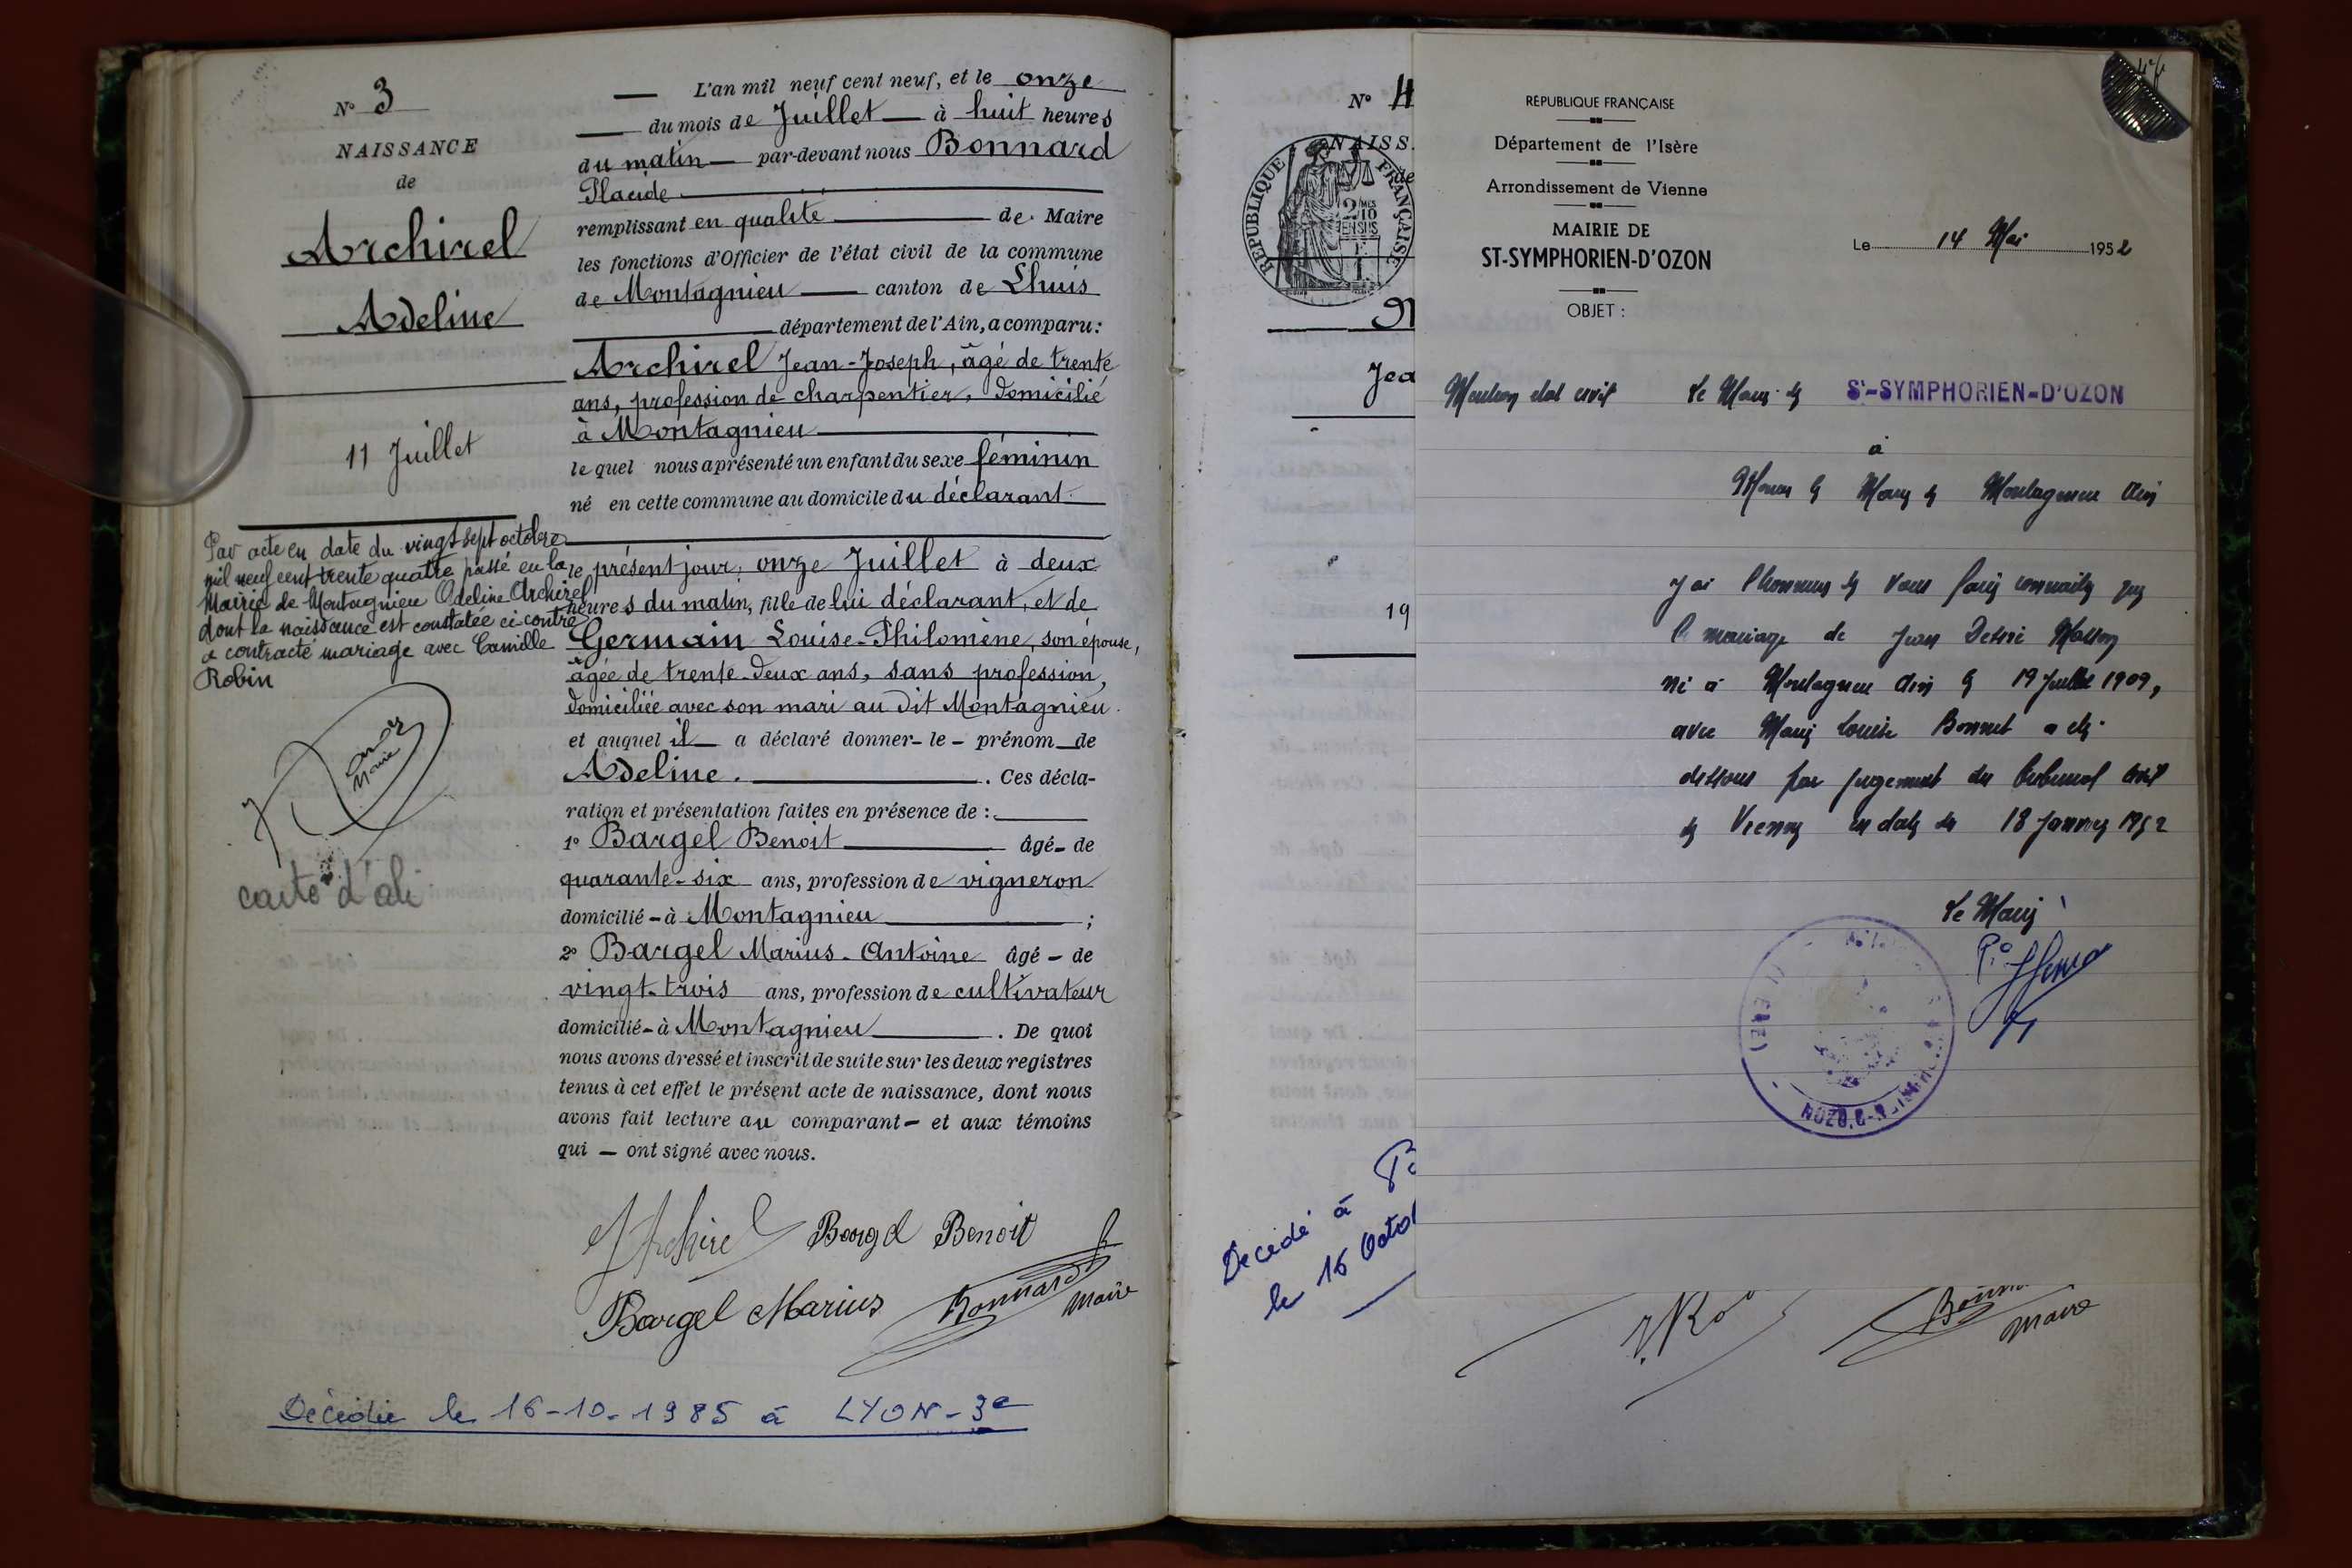 N° 3
NAISSANCE
de
Archirel
Adeline
11 Juillet
Par acte en date du vingt sept octobre
mil neuf cent trente quatre passé en la
Mairie de Montagnieu Adeline Archirel
dont la naissance est constatée ci contre
a contracté mariage avec Camille
Robin
Maire
carte d'ali
L'an mil neuf cent neuf, et le onze
du mois de Juillet à huit heures
du matin par-devant nous Bonnard
Placide
remplissant en qualité de Maire
les fonctions d'Officier de l'état civil de la commune
de Montagnieu canton de Lhuis
département de l'Ain, a comparu:
Archirel Jean-Joseph, âgé de trente
ans, profession de charpentier, domicilié
à Montagnieu
lequel nous a présenté un enfant du sexe féminin
né en cette commune au domicile du déclarant.
le présent jour, onze Juillet à deux
heures du matin, fille de lui déclarant, et de
Germain Louise-Philomène, son épouse,
âgée de trente-deux ans, sans profession,
domiciliée avec son mari au dit Montagnieu.
et auquel il a déclaré donner - le - prénom de
Adeline. . Ces décla-
ration et présentation faites en présence de :
1° Bargel Benoit âgé - de
quarante-six ans, profession de vigneron
domicilié - à Montagnieu ;
2° Bargel Marius-Antoine âgé - de
vingt-trois ans, profession de cultivateur
domicilié - à Montagnieu . De quoi
nous avons dressé et inscrit de suite sur les deux registres
tenus à cet effet le présent acte de naissance, dont nous
avons fait lecture au comparant - et aux témoins
qui - ont signé avec nous.
Archirel Bargel Benoit
Bargel Marius Bonnard
Maire
Décédée le 16-10-1985 à LYON-3e
N° 4
NAISS.
de
REPUBLIQUE FRANÇAISE
Jea
19
Décédé à
le 16 Octo
RÉPUBLIQUE FRANÇAISE
Département de l'Isère
Arrondissement de Vienne
MAIRIE DE
ST-SYMPHORIEN-D'OZON
Le 14 Mai 1952
OBJET :
Mention état civil Le Maire de St-SYMPHORIEN-D'OZON
à
Monsieur le Maire de Montagnieu Ain
J'ai l'honneur de vous faire connaître que
le mariage de Jean Désiré
né à Montagnieu Ain le 19 Juillet 1909,
avec Marie Louise Bonnet a été
dissous par jugement du tribunal civil
de Vienne en date du 18 Janvier 1952
Le Maire
Po
D'OZON
Maire